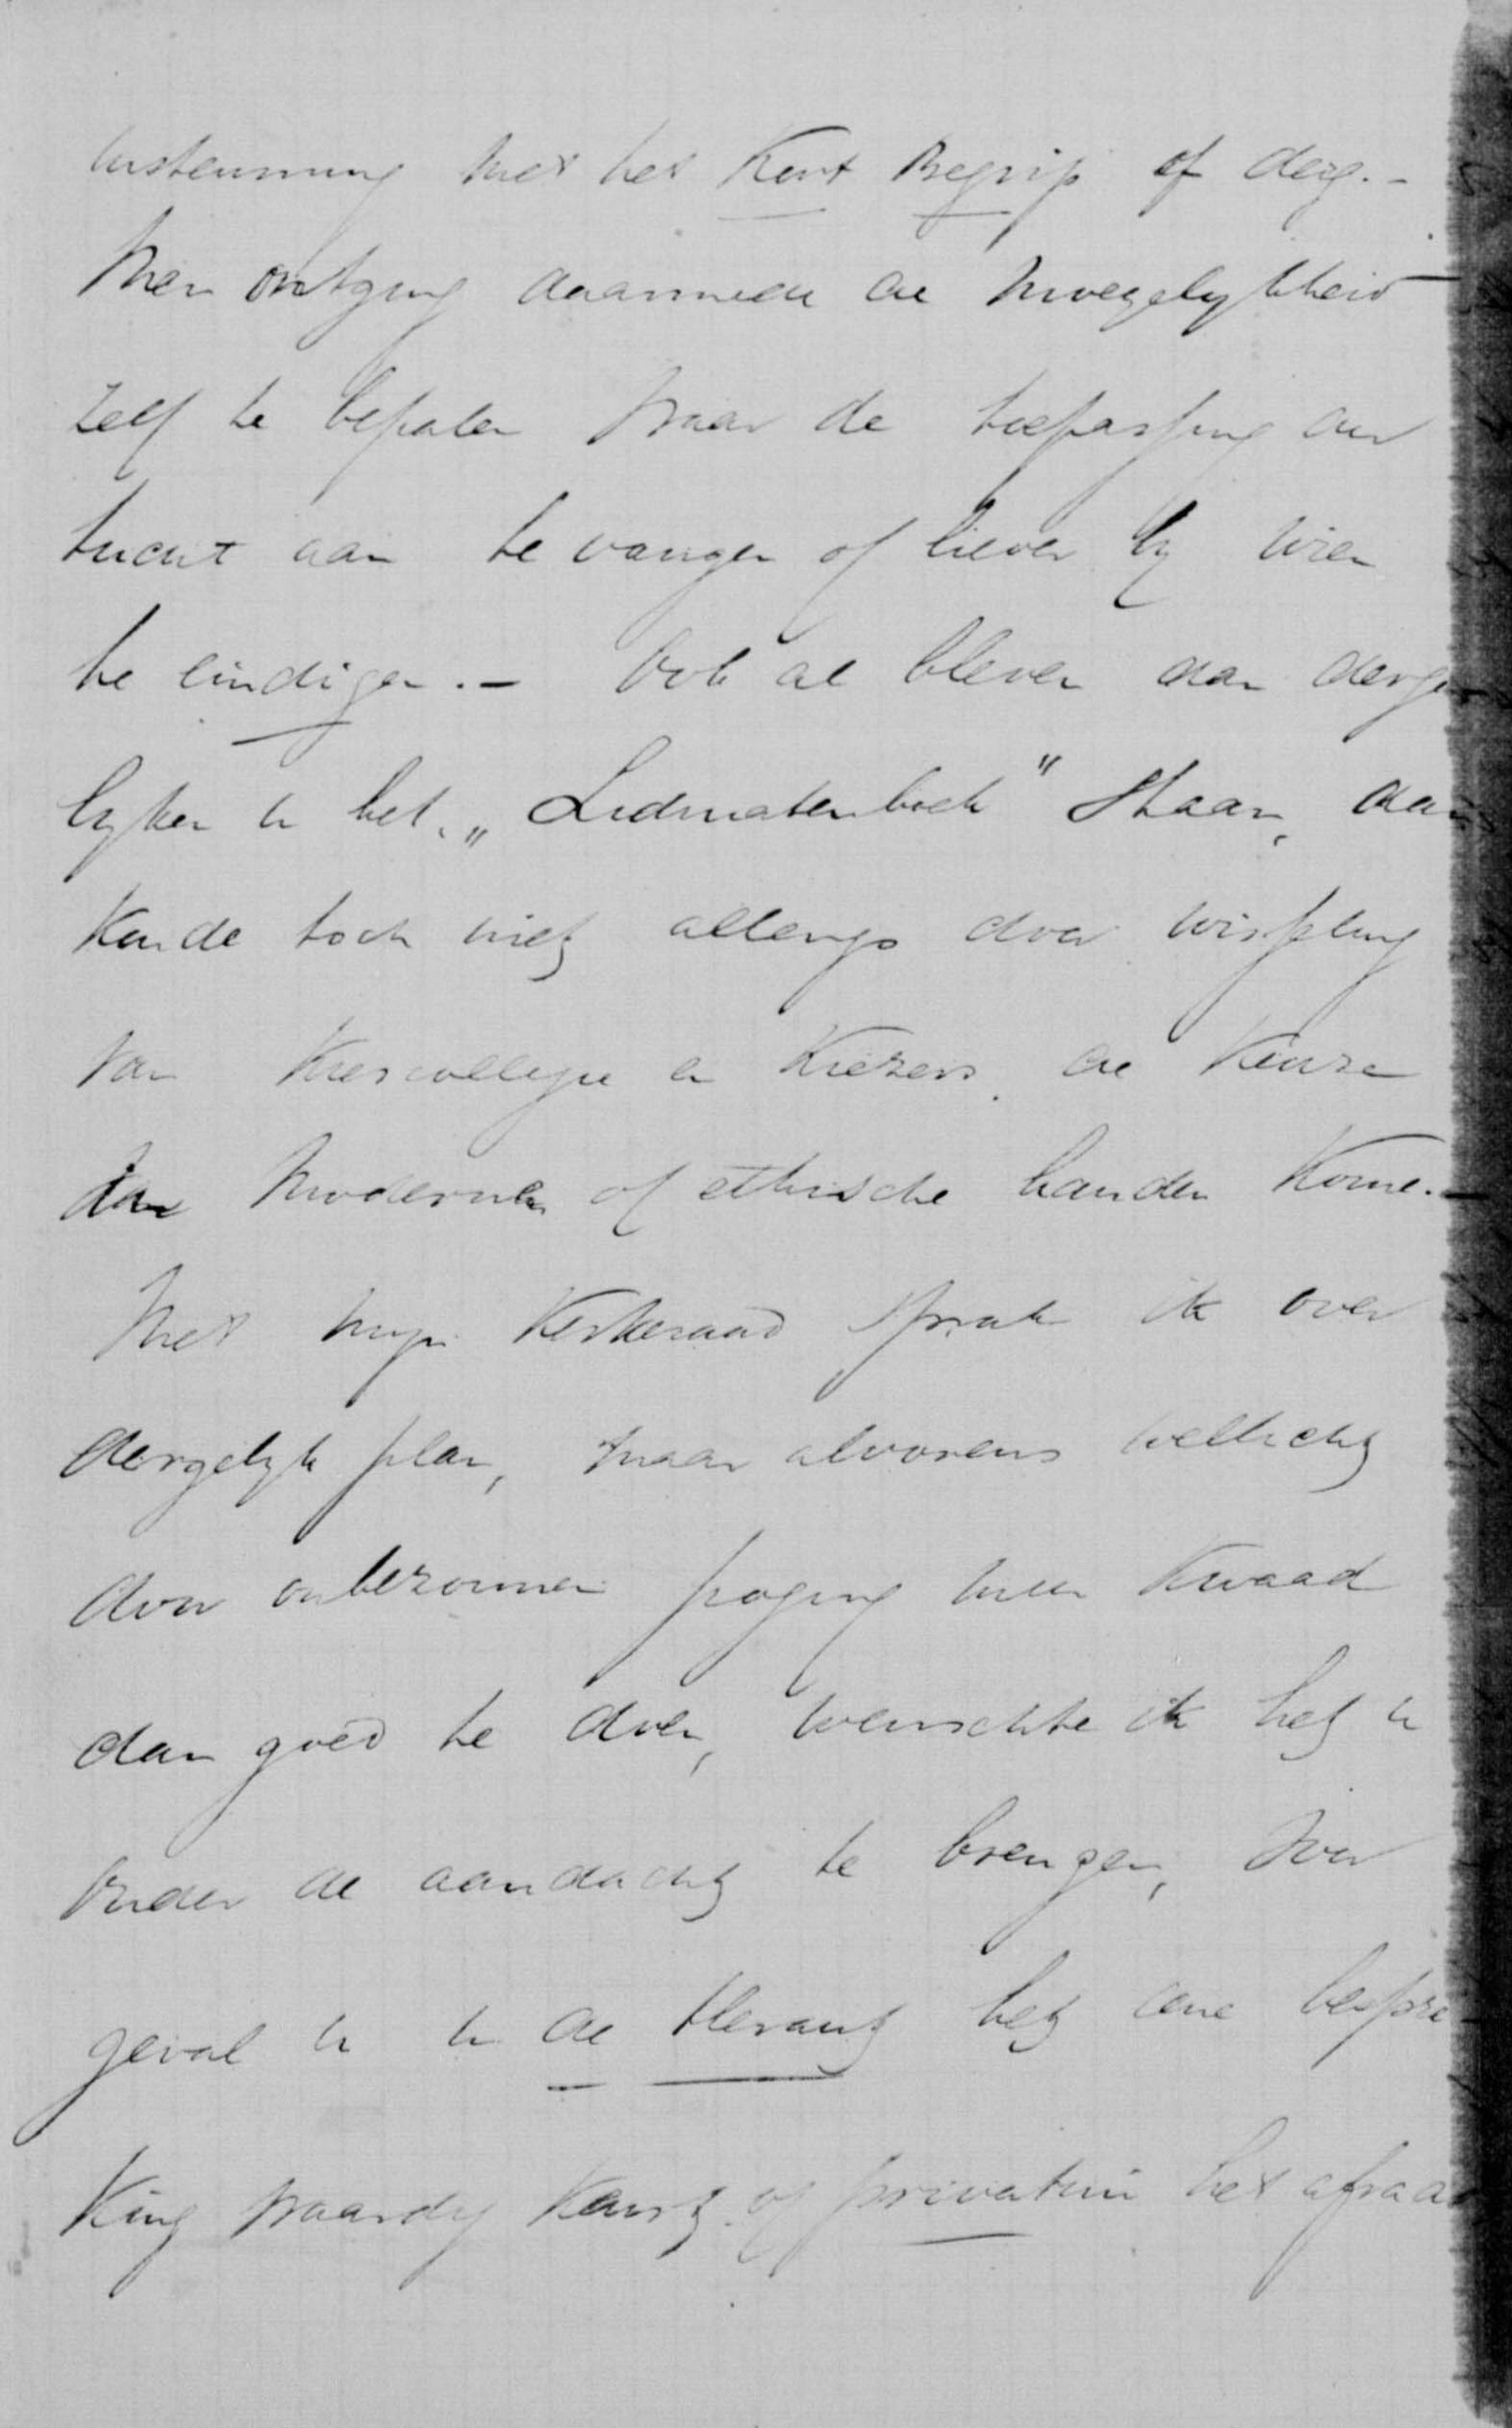 instemming met het Kort Begrip of derg. -
Men ontging daarmede de moeyelykheid
zelf te bepalen waar de toepassing der
tucht aan te vangen of liever by wien
te eindigen. - Ook al bleven dan derge
lyken in het „Lidmatenboek" staan, dan
konde toch niet allengs door wisseling
van Kiescollegie en Kiezers de Keuze
aan moderne of ethische handen komen. -
Met myn Kerkeraad sprak ik over
dergelyk plan, maar alvorens wellicht
door onbezonnen poging meer kwaad
dan goed te doen, wenschte ik het U
onder de aandacht te brengen, voor
geval U in de Heraut het eene bespre
king waardig keurt of privatim het afraa